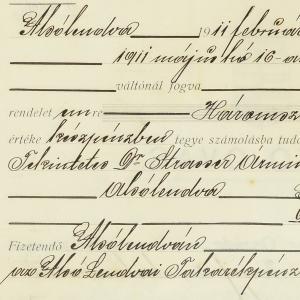 Alsólendva 1911 február
1911 május hó 16-án
váltónál fogva
rendelet em re Háromsz
értéke készpénzben tegye számolásba tudó
Tekintetes Dr Strasser Ármin
Alsólendva
Fizetendő Alsólendván
az Alsó Lendvai Takarékpénz